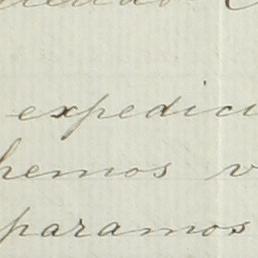 expedici
hemos v
paramos